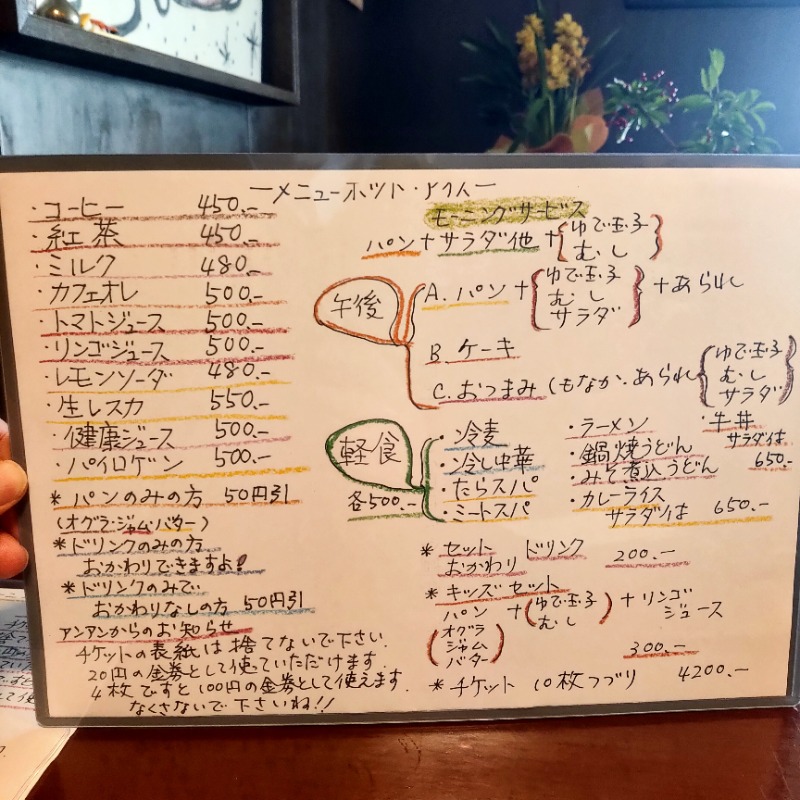 ーメニューホット・アイスー
・コーヒー 450.-
・紅茶 450.-
・ミルク 480.-
・カフェオレ 500.-
・トマトジュース 500.-
・リンゴジュース 500.-
・レモンソーダ 480.-
・生レスカ 550.-
・健康ジュース 500.-
・パイロゲン 500.-
* パンのみの方 50円引
(オグラ・ジャム・バター)
* ドリンクのみの方
おかわりできますよ!
* ドリンクのみで
おかわりなしの方 50円引
アンアンからのお知らせ
チケットの表紙は捨てないで下さい.
20円の金券として使っていただけます.
4枚ですと100円の金券として使えます.
なくさないで下さいね!!
モーニングサービス
パン+サラダ他+{ゆで玉子
むし}
午後
A. パン+{ゆで玉子
むし
サラダ}+あられ
B ケーキ
C. おつまみ(もなか.あられ{ゆで玉子
むし
サラダ}
軽食
各500.-
・冷麦
・冷し中華
・たらスパ
・ミートスパ
・ラーメン
・鍋焼うどん
・みそ煮込うどん
・カレーライス
サラダ付は 650.-
・牛丼
サラダ付は
650.-
* セット ドリンク 200.-
おかわり
* キッズセット
パン
(オグラ
ジャム
バター)
+(ゆで玉子
むし)
+リンゴ
ジュース
300.-
* チケット 10枚つづり 4200.-